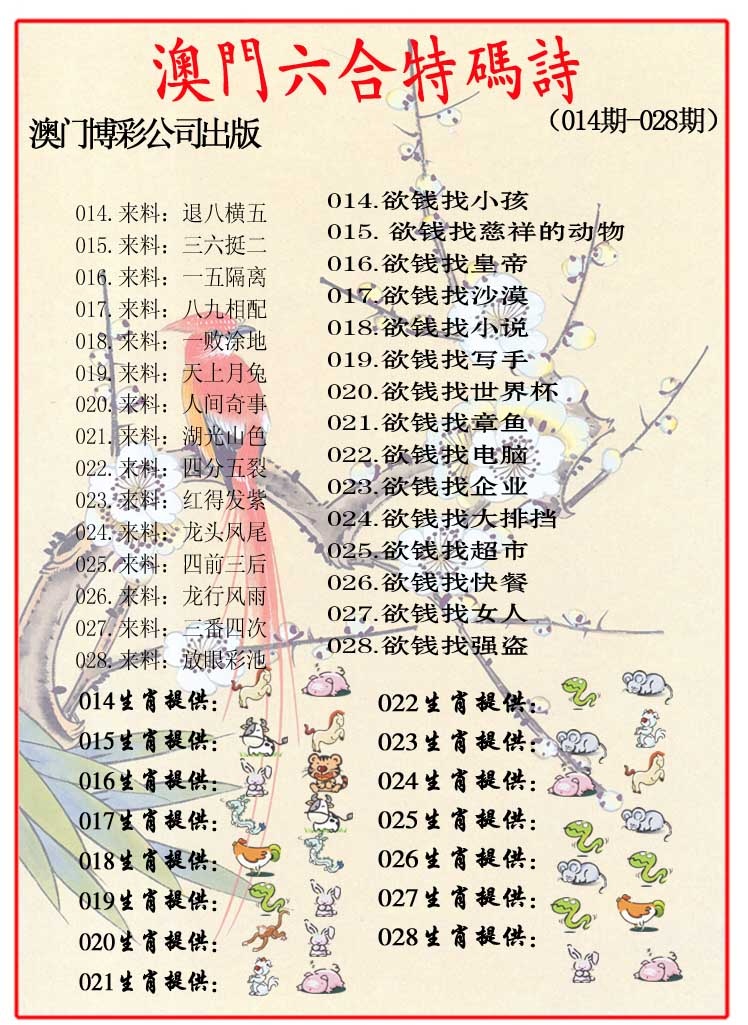 澳門六合特碼詩
澳门博彩公司出版
（014期-028期）
014.来料：退八横五
015.来料：三六挺二
016.来料：一五隔离
017.来料：八九相配
018.来料：一败涂地
019.来料：天上月兔
020.来料：人间奇事
021.来料：湖光山色
022.来料：四分五裂
023.来料：红得发紫
024.来料：龙头风尾
025.来料：四前三后
026.来料：龙行风雨
027.来料：三番四次
028.来料：放眼彩池
014.欲钱找小孩
015. 欲钱找慈祥的动物
016.欲钱找皇帝
017.欲钱找沙漠
018.欲钱找小说
019.欲钱找写手
020.欲钱找世界杯
021.欲钱找章鱼
022.欲钱找电脑
023.欲钱找企业
024.欲钱找大排挡
025.欲钱找超市
026.欲钱找快餐
027.欲钱找女人
028.欲钱找强盗
014生肖提供：
015生肖提供：
016生肖提供：
017生肖提供：
018生肖提供：
019生肖提供：
020生肖提供：
021生肖提供：
022生肖提供：
023生肖提供：
024生肖提供：
025生肖提供：
026生肖提供：
027生肖提供：
028生肖提供：